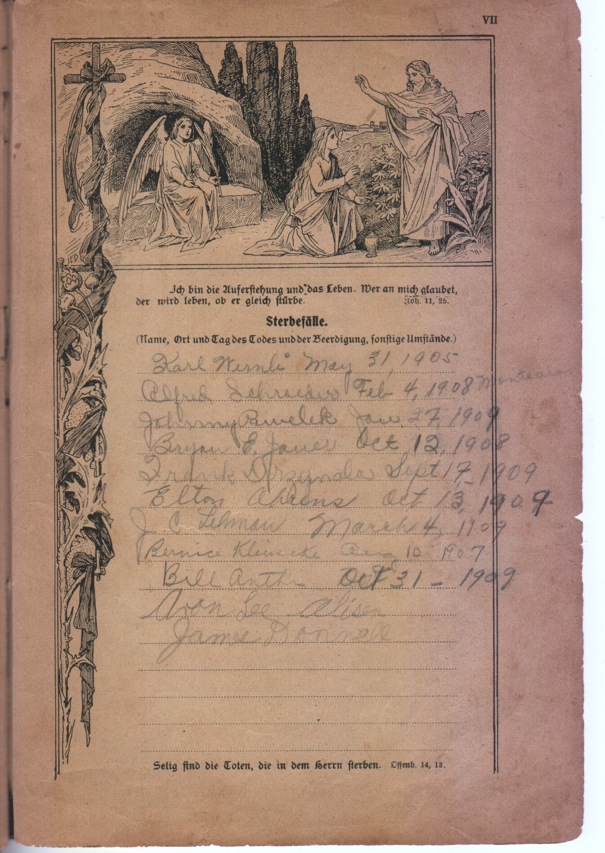 VII
Ich bin die Auferstehung und das Leben. Wer an mich glaubet,
der wird leben, ob er gleich stürbe. Joh. 11, 25.
Sterbefälle.
(Name, Ort und Tag des Todes und der Beerdigung, sonstige Umstände.)
Karl Wernli May 31, 1905
Alfred Schroeder Feb 4, 1908
Johnny Pawelek Jan 27, 1909
Bryan E. Oct 12, 1908
Frank Sept 17, 1909
Elton Ahrens Oct 13, 1909
J. C. Lehman March 4, 1909
Bernice Kleinecke Aug 10 1907
Bill Oct 31 - 1909
Lee
James
Selig sind die Toten, die in dem Herrn sterben. Offenb. 14, 13.